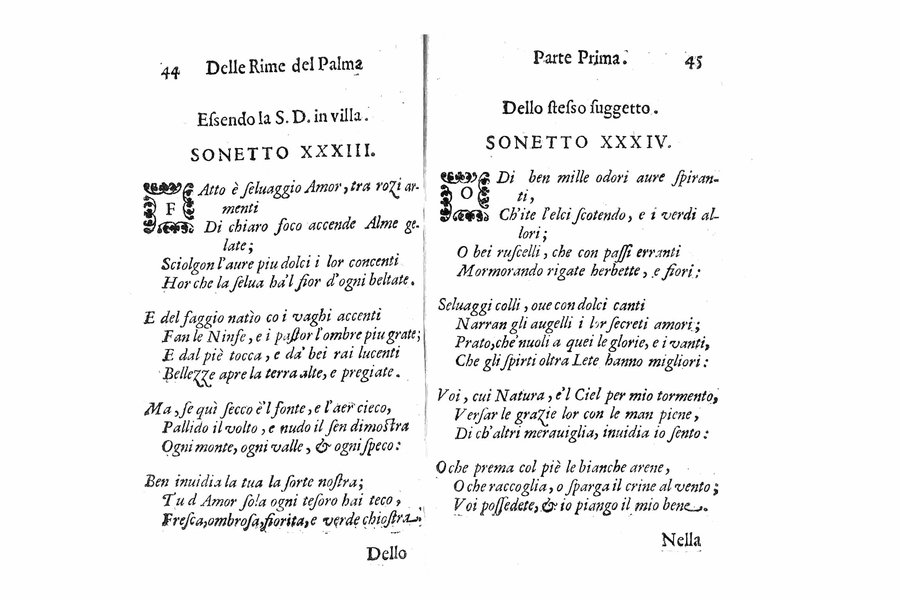 44 Delle Rime del Palma
Eſsendo la S. D. in villa.
SONETTO XXXIII.
FAtto è ſeluaggio Amor, tra rozi ar-
menti
Di chiaro foco accende Alme ge-
late;
Sciolgon l'aure piu dolci i lor concenti
Hor che la ſelua ha'l fior d'ogni beltate.
E del faggio natìo co i vaghi accenti
Fan le Ninfe, e i paſtor l'ombre piu grate;
E dal piè tocca, e da' bei rai lucenti
Bellezze apre la terra alte, e pregiate.
Ma, ſe quì ſecco è'l fonte, e l'aer cieco,
Pallido il volto, e nudo il ſen dimoſtra
Ogni monte, ogni valle, & ogni ſpeco:
Ben inuidia la tua la ſorte noſtra;
Tu d Amor ſola ogni teſoro hai teco,
Freſca, ombroſa, fiorita, e verde chioſtra.
Dello
Parte Prima. 45
Dello ſteſso ſuggetto.
SONETTO XXXIV.
ODi ben mille odori aure ſpiran-
ti,
Ch'ite l'elci ſcotendo, e i verdi al-
lori;
O bei ruſcelli, che con paſſi erranti
Mormorando rigate herbette, e fiori;
Seluaggi colli, oue con dolci canti
Narran gli augelli i lor ſecreti amori;
Prato, che nuoli a quei le glorie, e i vanti,
Che gli ſpirti oltra Lete hanno migliori:
Voi, cui Natura, e'l Ciel per mio tormento,
Verſar le grazie lor con le man piene,
Di ch'altri merauiglia, inuidia io ſento:
O che prema col piè le bianche arene,
O che raccoglia, o ſparga il crine al vento;
Voi poſſedete, & io piango il mio bene.
Nella